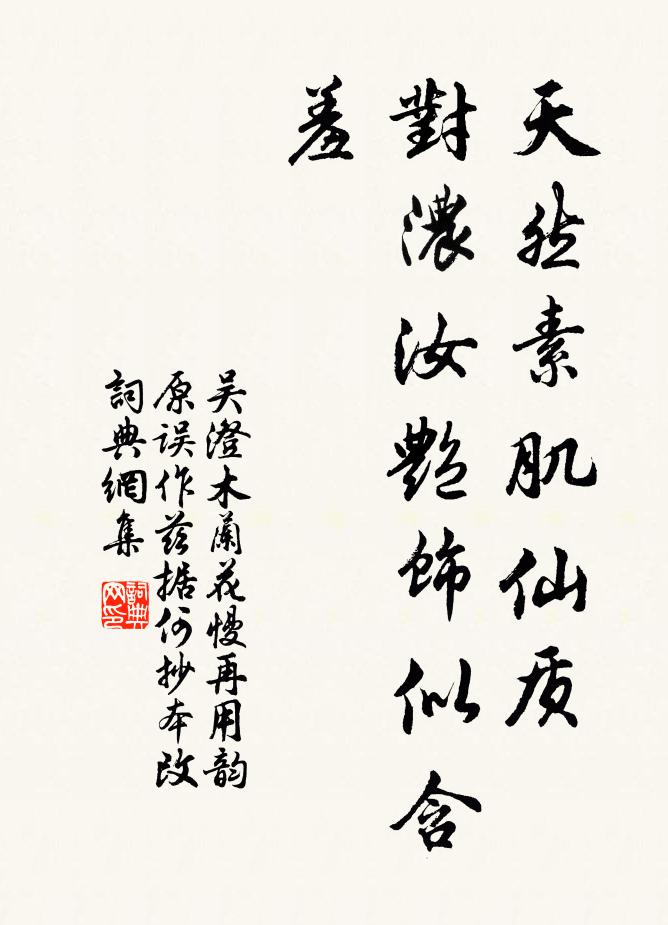 天然素肌仙质
對濃汝艷飾似含
羞
吴澄木蘭花慢再用韵
原误作兹据何抄本改
詞典網集
詞典网印